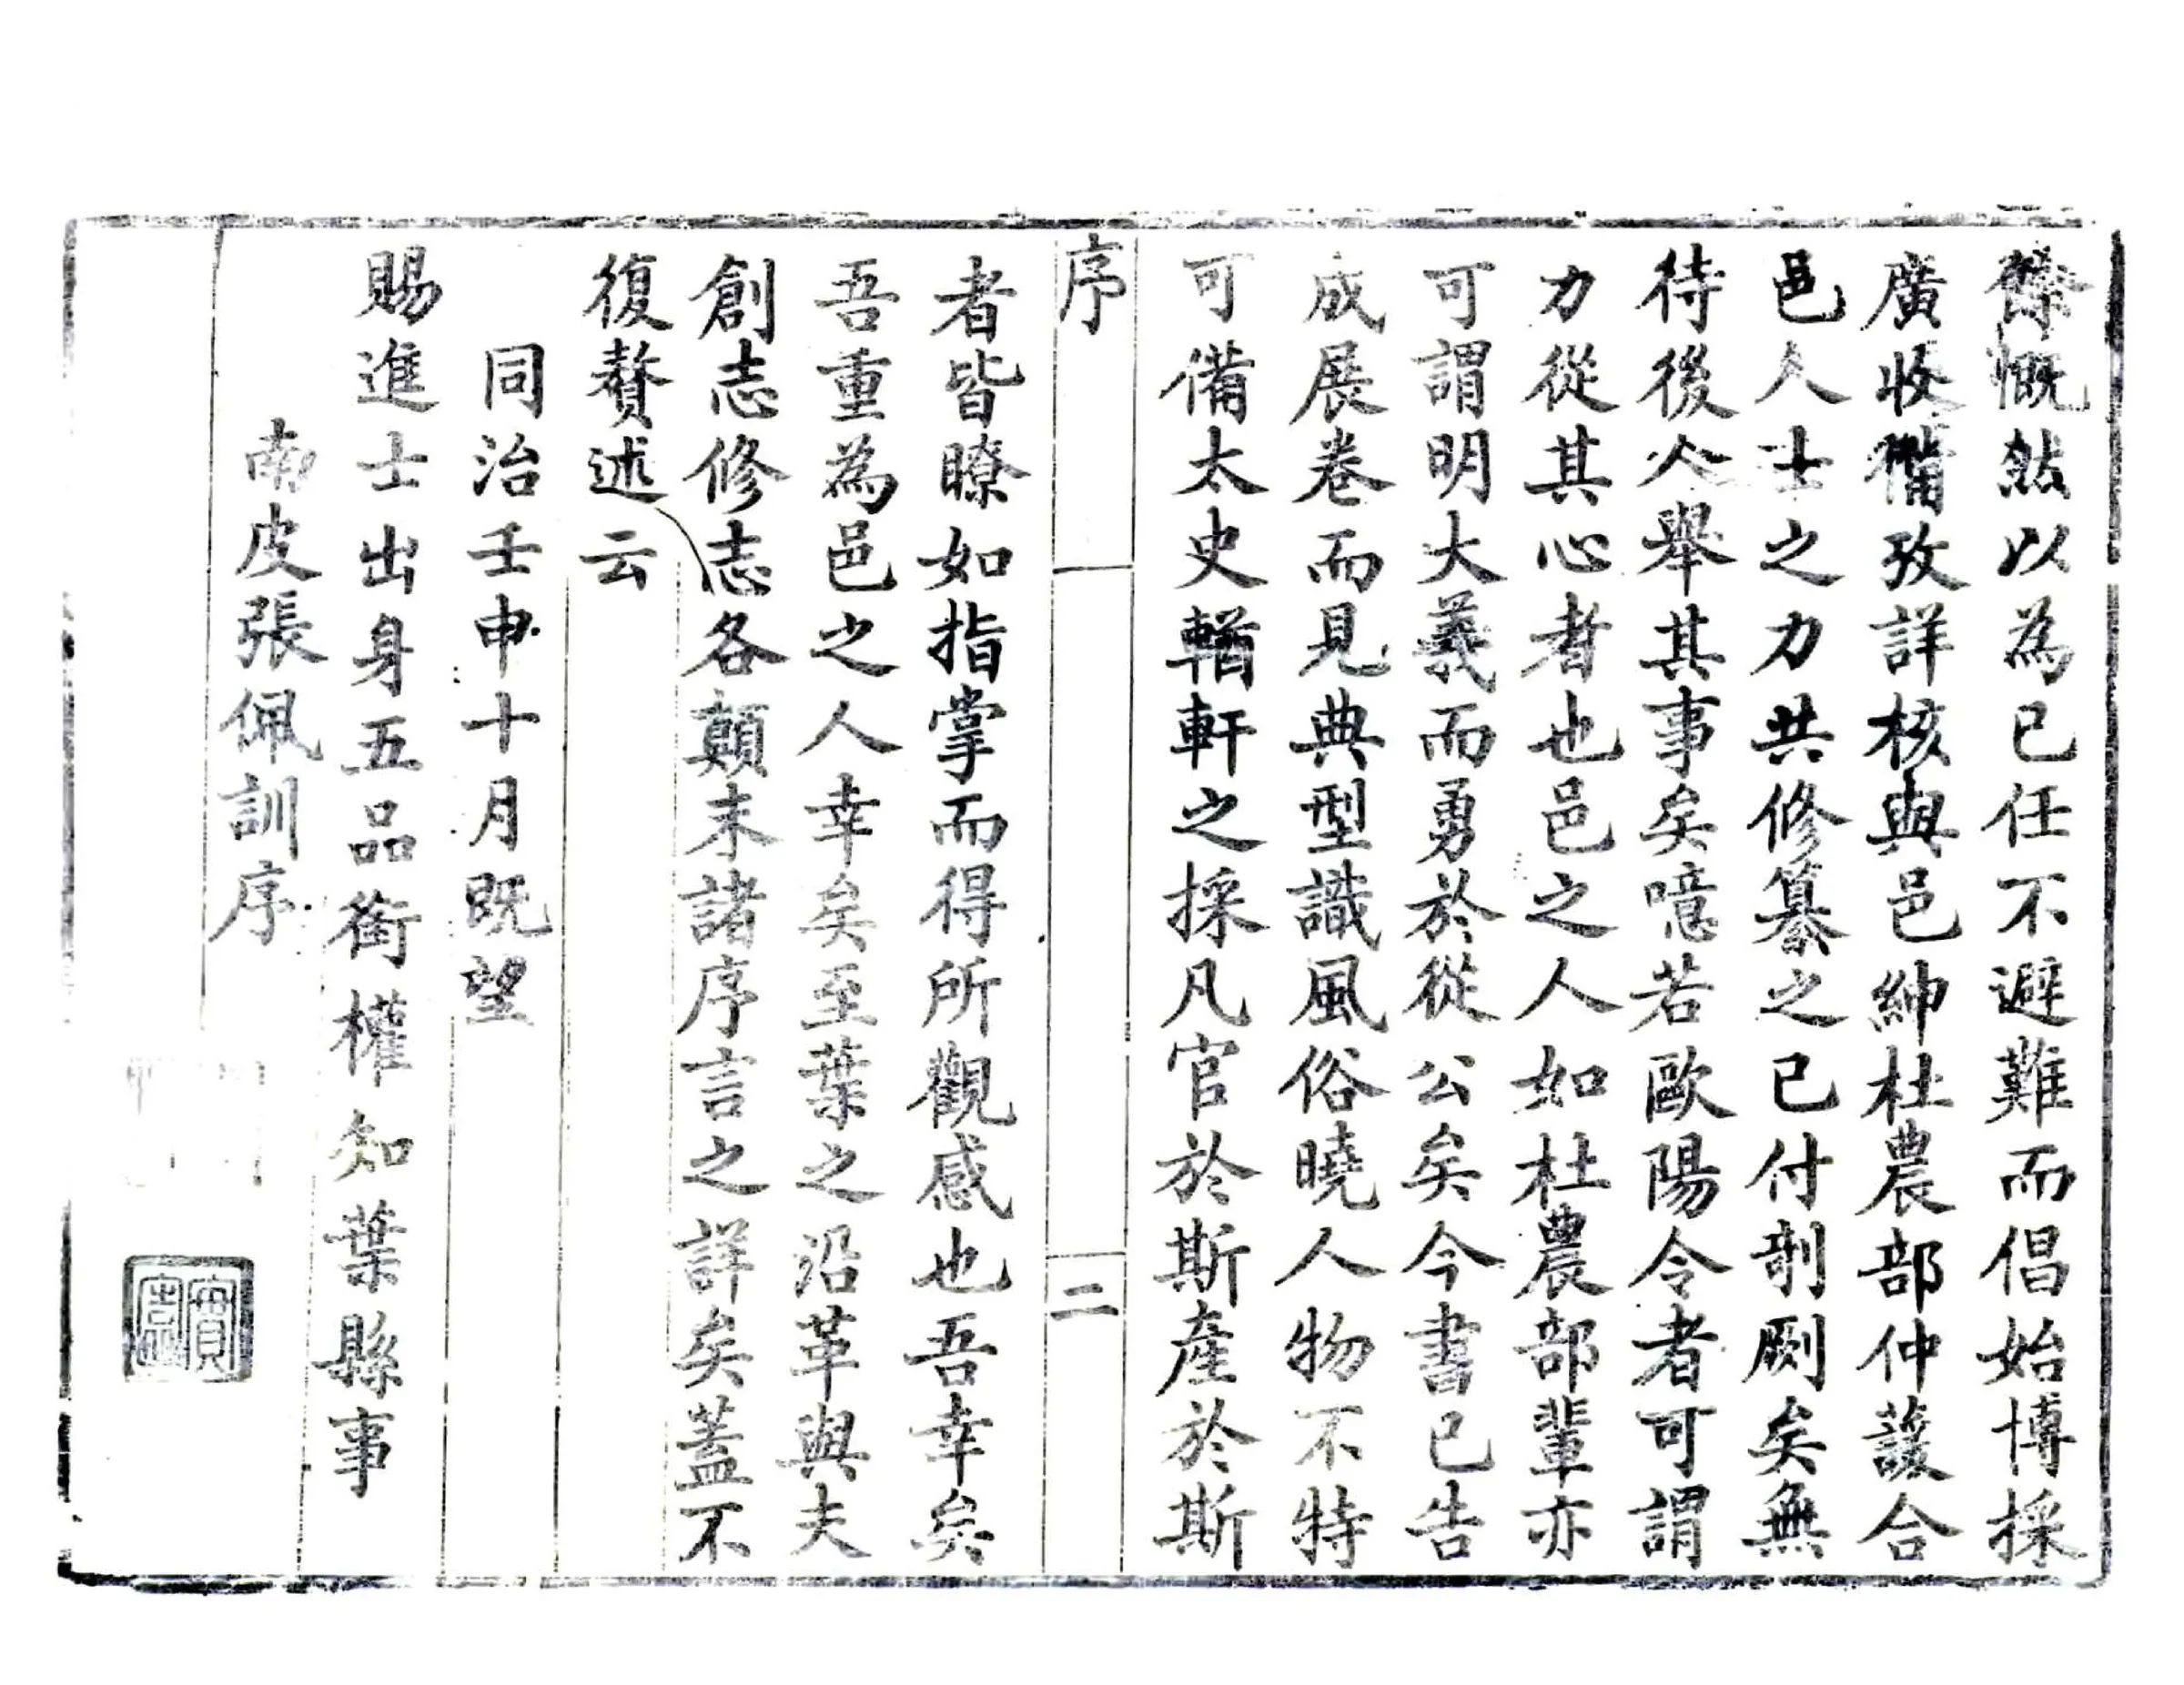 慨然以為已任不避難而倡始博採
廣收備攷詳核與邑紳杜農部仲䕶合
邑人士之力共修纂之已付剞劂矣無
待後人舉其事矣噫若歐陽令者可謂
力從其心者也邑之人如杜農部輩亦
可謂明大義而勇於從公矣今書已告
成展卷而見典型識風俗曉人物不特
可備太史輶軒之採凡官於斯產於斯
序
二
者皆瞭如指掌而得所觀感也吾幸矣
吾重為邑之人幸矣至葉之沿革與夫
創志修志各顛末諸序言之詳矣蓋不
復贅述云
同治壬申十月既望
賜進士出身五品銜權知葉縣事
南皮張佩訓序